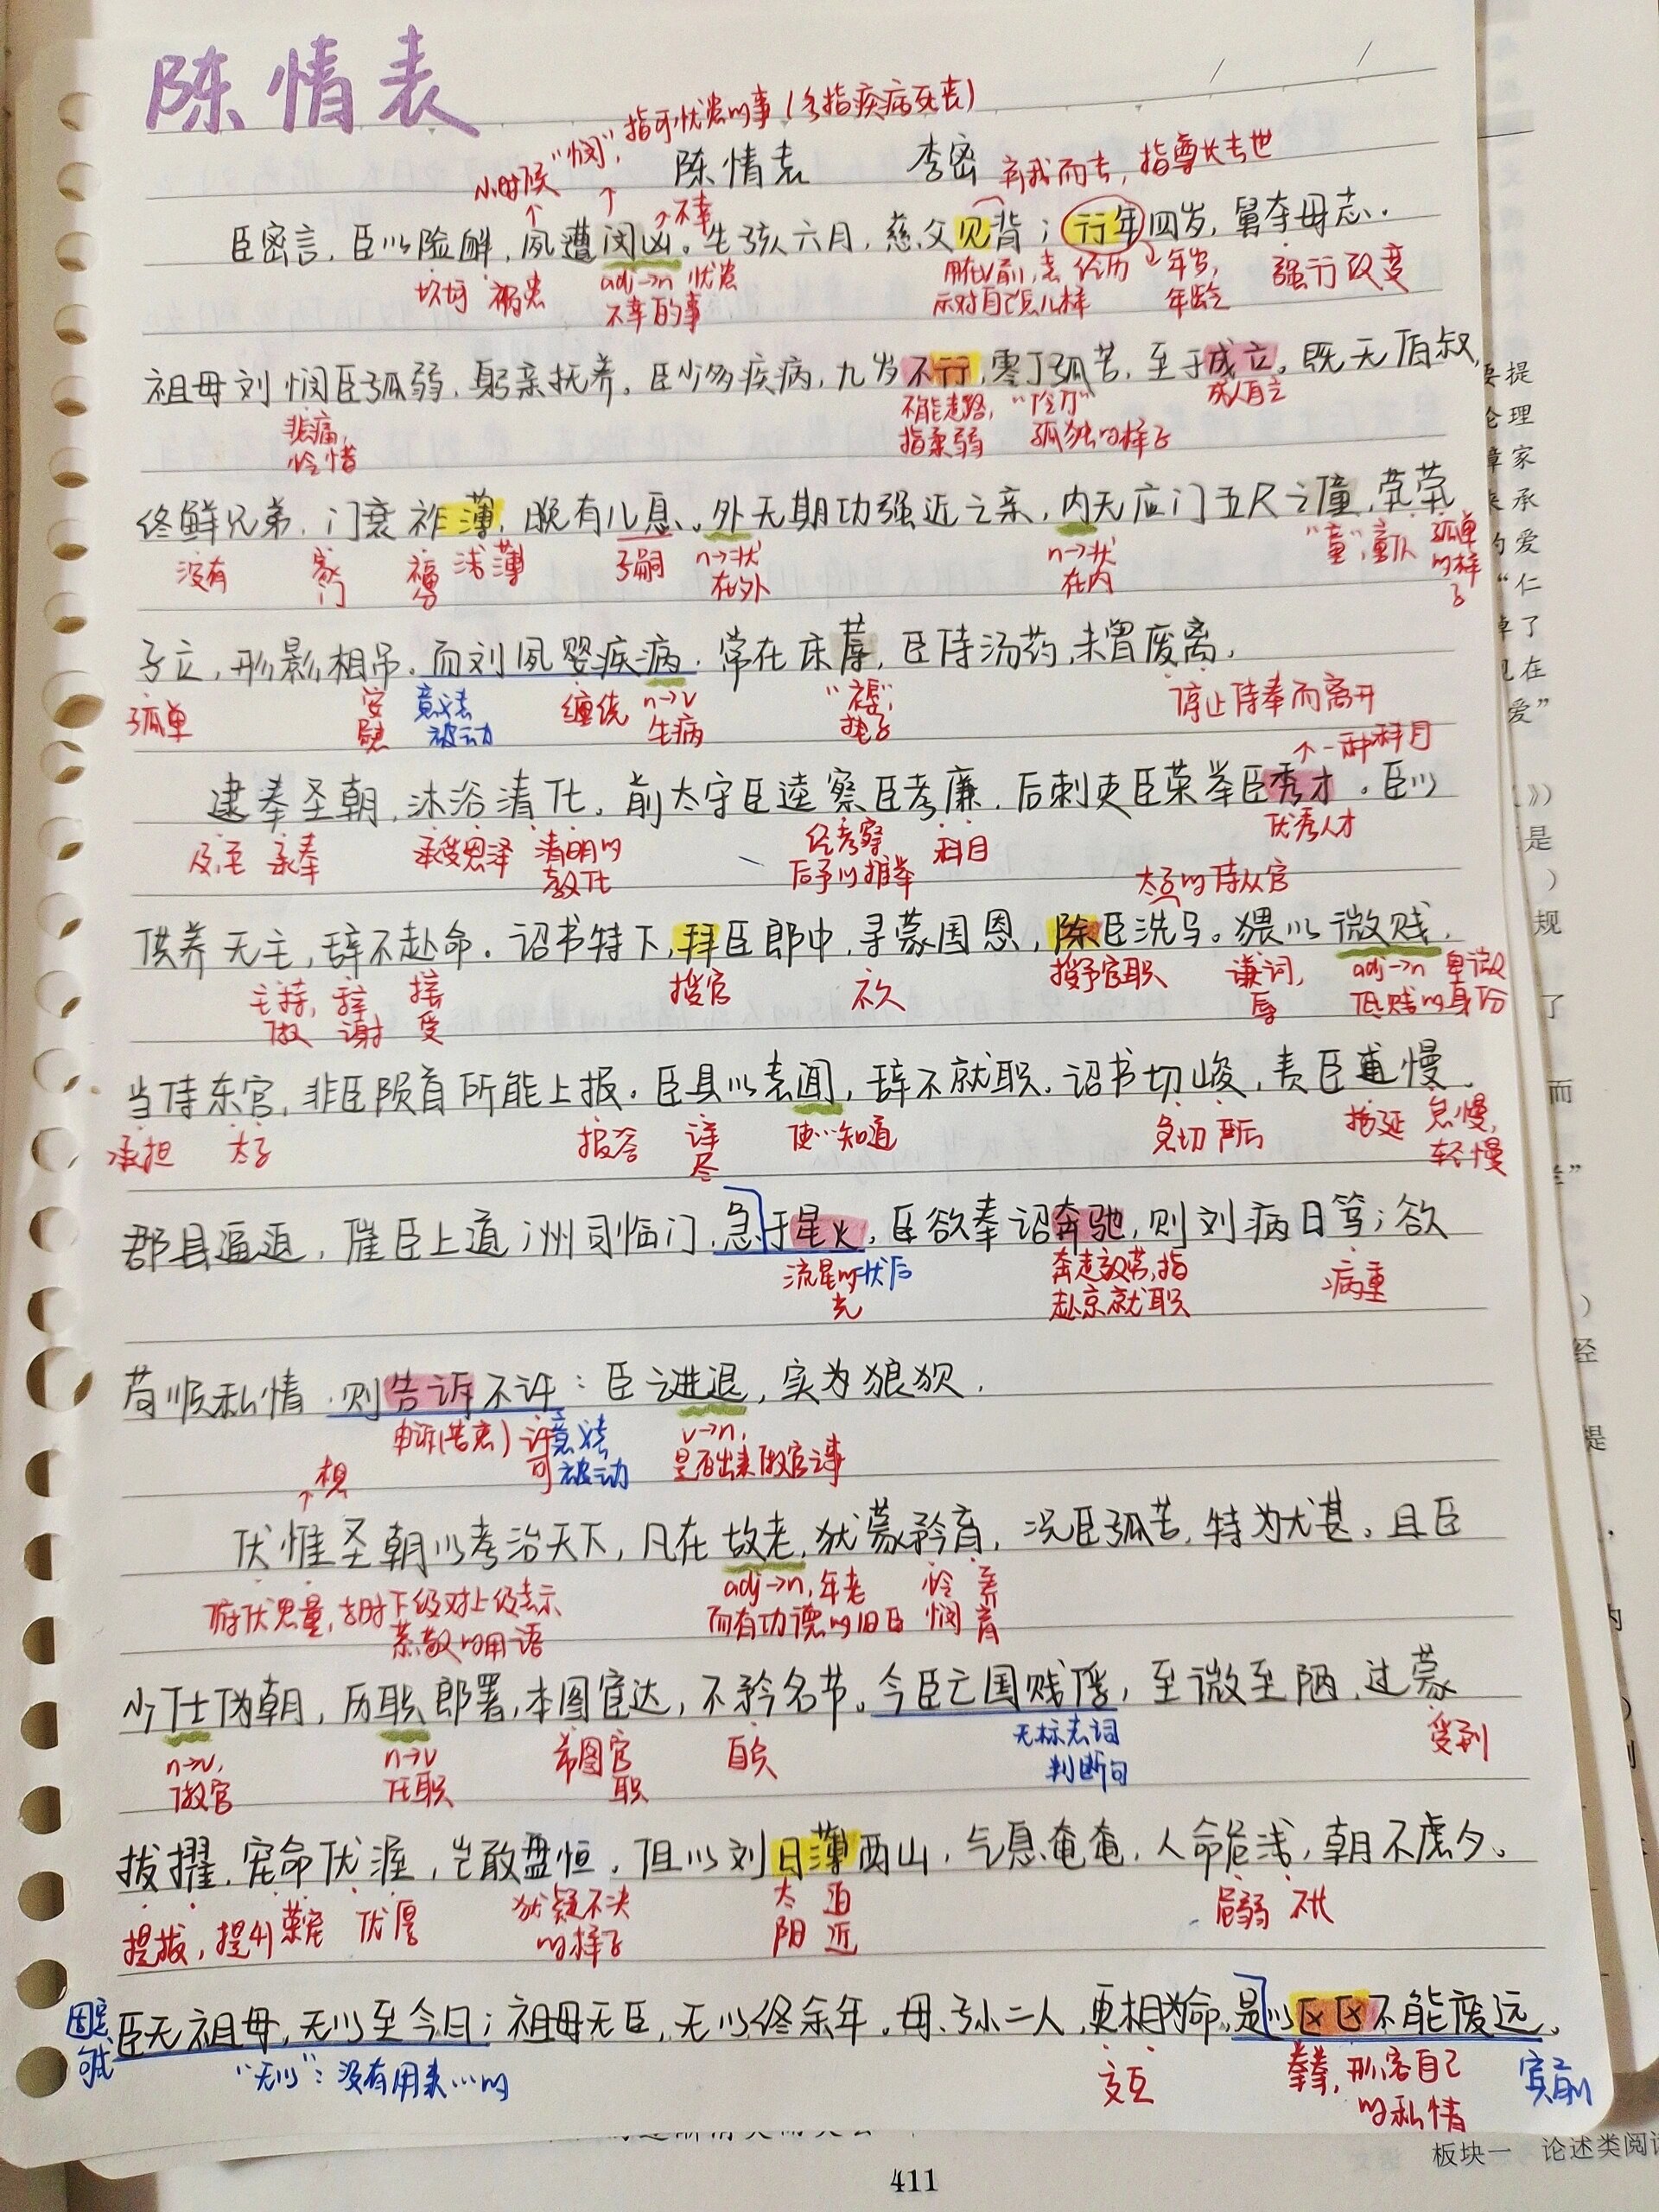 陈情表
"悯",指可忧患的事(多指疾病死丧)
小时候 ↑ ↑ 陈情表 李密 弃我而去,指尊长去世
↗不幸
臣密言,臣以险衅,夙遭闵凶。生孩六月,慈父见背;行年四岁,舅夺母志.
坎坷 祸患 adj→n 忧患 不幸的事 用在v前,表示对自己怎么样 经历 ↘年岁,年龄 强行改变
祖母刘悯臣孤弱,躬亲抚养。臣少多疾病,九岁不行,零丁孤苦,至于成立。既无伯叔,
悲痛,怜惜 不能走路,指柔弱 "伶仃"孤独的样子 成人自立
终鲜兄弟,门衰祚薄,晚有儿息。外无期功强近之亲,内无应门五尺之僮,茕茕
没有 家门 福分 浅薄 子嗣 n→状 在外 n→状 在内 "童",童仆 孤单的样子
孑立,形影相吊。而刘夙婴疾病,常在床蓐,臣侍汤药,未曾废离。
孤单 安慰 意义被动 缠绕 n→v 生病 "褥",垫子 停止侍奉而离开
↑一种科目
逮奉圣朝,沐浴清化。前太守臣逵察臣孝廉,后刺史臣荣举臣秀才。臣以
及至 承奉 承受恩泽 清明的教化 经考察后予以推举 科目 优秀人才
太子的侍从官
供养无主,辞不赴命。诏书特下,拜臣郎中,寻蒙国恩,除臣洗马。猥以微贱,
主持,做 辞谢 接受 授官 不久 授予官职 谦词,辱 adj→n 卑微低贱的身份
当侍东宫,非臣陨首所能上报。臣具以表闻,辞不就职。诏书切峻,责臣逋慢
承担 太子 报答 详尽 使…知道 急切 严厉 拖延 怠慢,轻慢
郡县逼迫,催臣上道;州司临门,急于星火。臣欲奉诏奔驰,则刘病日笃;欲
流星的光 状后 奔走效劳,指赴京就职 病重
苟顺私情,则告诉不许:臣之进退,实为狼狈.
申诉(苦衷) 许可 意义被动 v→n,是否出来做官之事
↑想
伏惟圣朝以孝治天下,凡在故老,犹蒙矜育,况臣孤苦,特为尤甚。且臣
俯伏思量,古时下级对上级表示恭敬的用语 adj→n,年老而有功德的旧臣 怜悯 养育
少仕伪朝,历职郎署,本图宦达,不矜名节。今臣亡国贱俘,至微至陋,过蒙
n→v,做官 n→v 任职 希图官职 自负 无标志词判断句 受到
拔擢,宠命优渥,岂敢盘桓。但以刘日薄西山,气息奄奄,人命危浅,朝不虑夕。
提拔,提升 荣宠 优厚 犹疑不决的样子 太阳 迫近 危弱 不长
臣无祖母,无以至今日;祖母无臣,无以终余年。母、孙二人,更相为命,是以区区不能废远。
固定句式 "无以":没有用来…的 交互 拳拳,形容自己的私情 宾前
411
板块一 论述类阅读